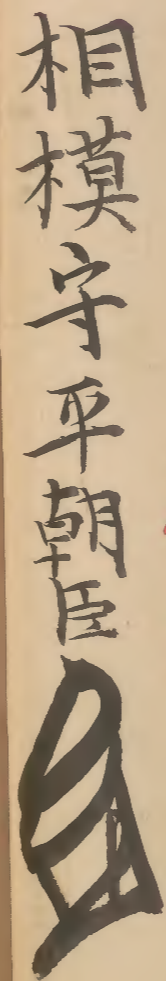 相模守平朝臣